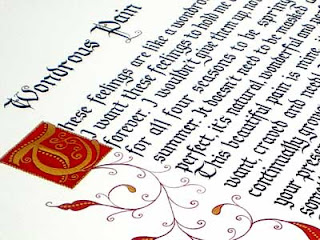 Wondrous Pain
These feelings are like a wondro
I want these feelings to hold me
forever. I wouldn't give them up, no
for all four seasons to be spring
summer. It doesn't need to be masked
perfect, it's natural, wonderful and
This beautiful pain is mine,
want, craved and
continually grow
your pres
somet